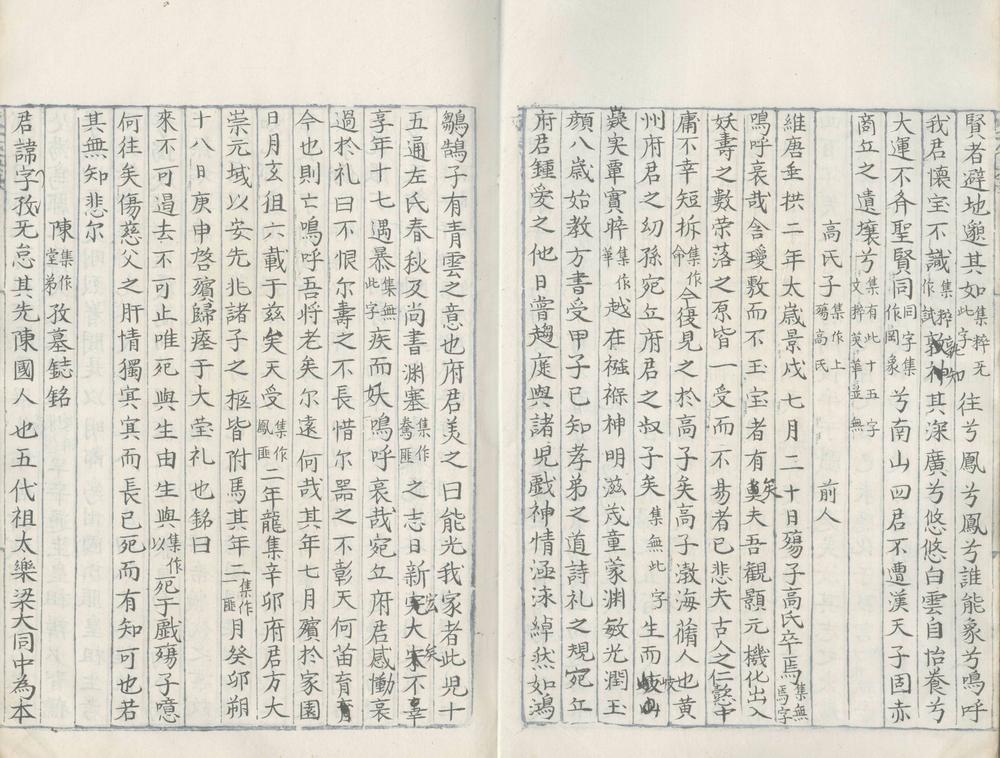 賢者避地邈其如此集粹无此字往兮鳳兮鳳兮誰能象兮嗚呼
我君懷宝不識集粹作試孰知其深廣兮悠悠白雲自怡養兮
大運不齐聖賢同同字集作罔象兮南山四君不遭漢天子固赤
商丘之遺壤兮集有此十五字文粹英華並無
高氏子集作上殤高氏 前人
維唐垂拱二年太歲景戌七月二十日殤子高氏卒焉集無焉字
嗚呼哀哉含璦敷而不玉宝者有矣夫吾観顥元機化出入
妖壽之數荣落之原皆一受而不昜者已悲夫古人之仁懿中
庸不幸短拆集作命今復見之於高子矣高子渤海蓨人也黄
州府君之幼孫宛丘府君之叔子矣集無此字生而岐
嶷実覃實晬集作華越在襁褓神明滋茂童蒙渊敏光潤玉
顔八歳始教方書受甲子已知孝弟之道詩礼之規宛丘
府君鍾愛之他日嘗趨庭與諸児戲神情涵泳綽然如鴻
鶵鵠子有青雲之意也府君美之曰能光我家者此児十
五通左氏春秋及尚書渊塞集作騫匪之志日新宏大矣不幸
享年十七遇暴集無此字疾而妖嗚呼哀哉宛丘府君感慟哀
過於礼曰不恨尔壽之不長惜尔器之不彰天何畄育
今也則亡嗚呼吾將老矣尔遠何哉其年七月殯於家園
日月玄徂六載于兹矣天受集作鳳匪二年龍集辛卯府君方大
崇元域以安先兆諸子之柩皆附馬其年二集作匪月癸卯朔
十八日庚申啓殯歸瘞于大茔礼也銘曰
來不可遏去不可止唯死與生由生與集作以死于戲殤子噫
何往矣傷慈父之肝情獨冥冥而長已死而有知可也若
其無知悲尔
陳集作堂弟孜墓鋕銘
君諱字孜旡怠其先陳國人也五代祖太樂梁大同中為本